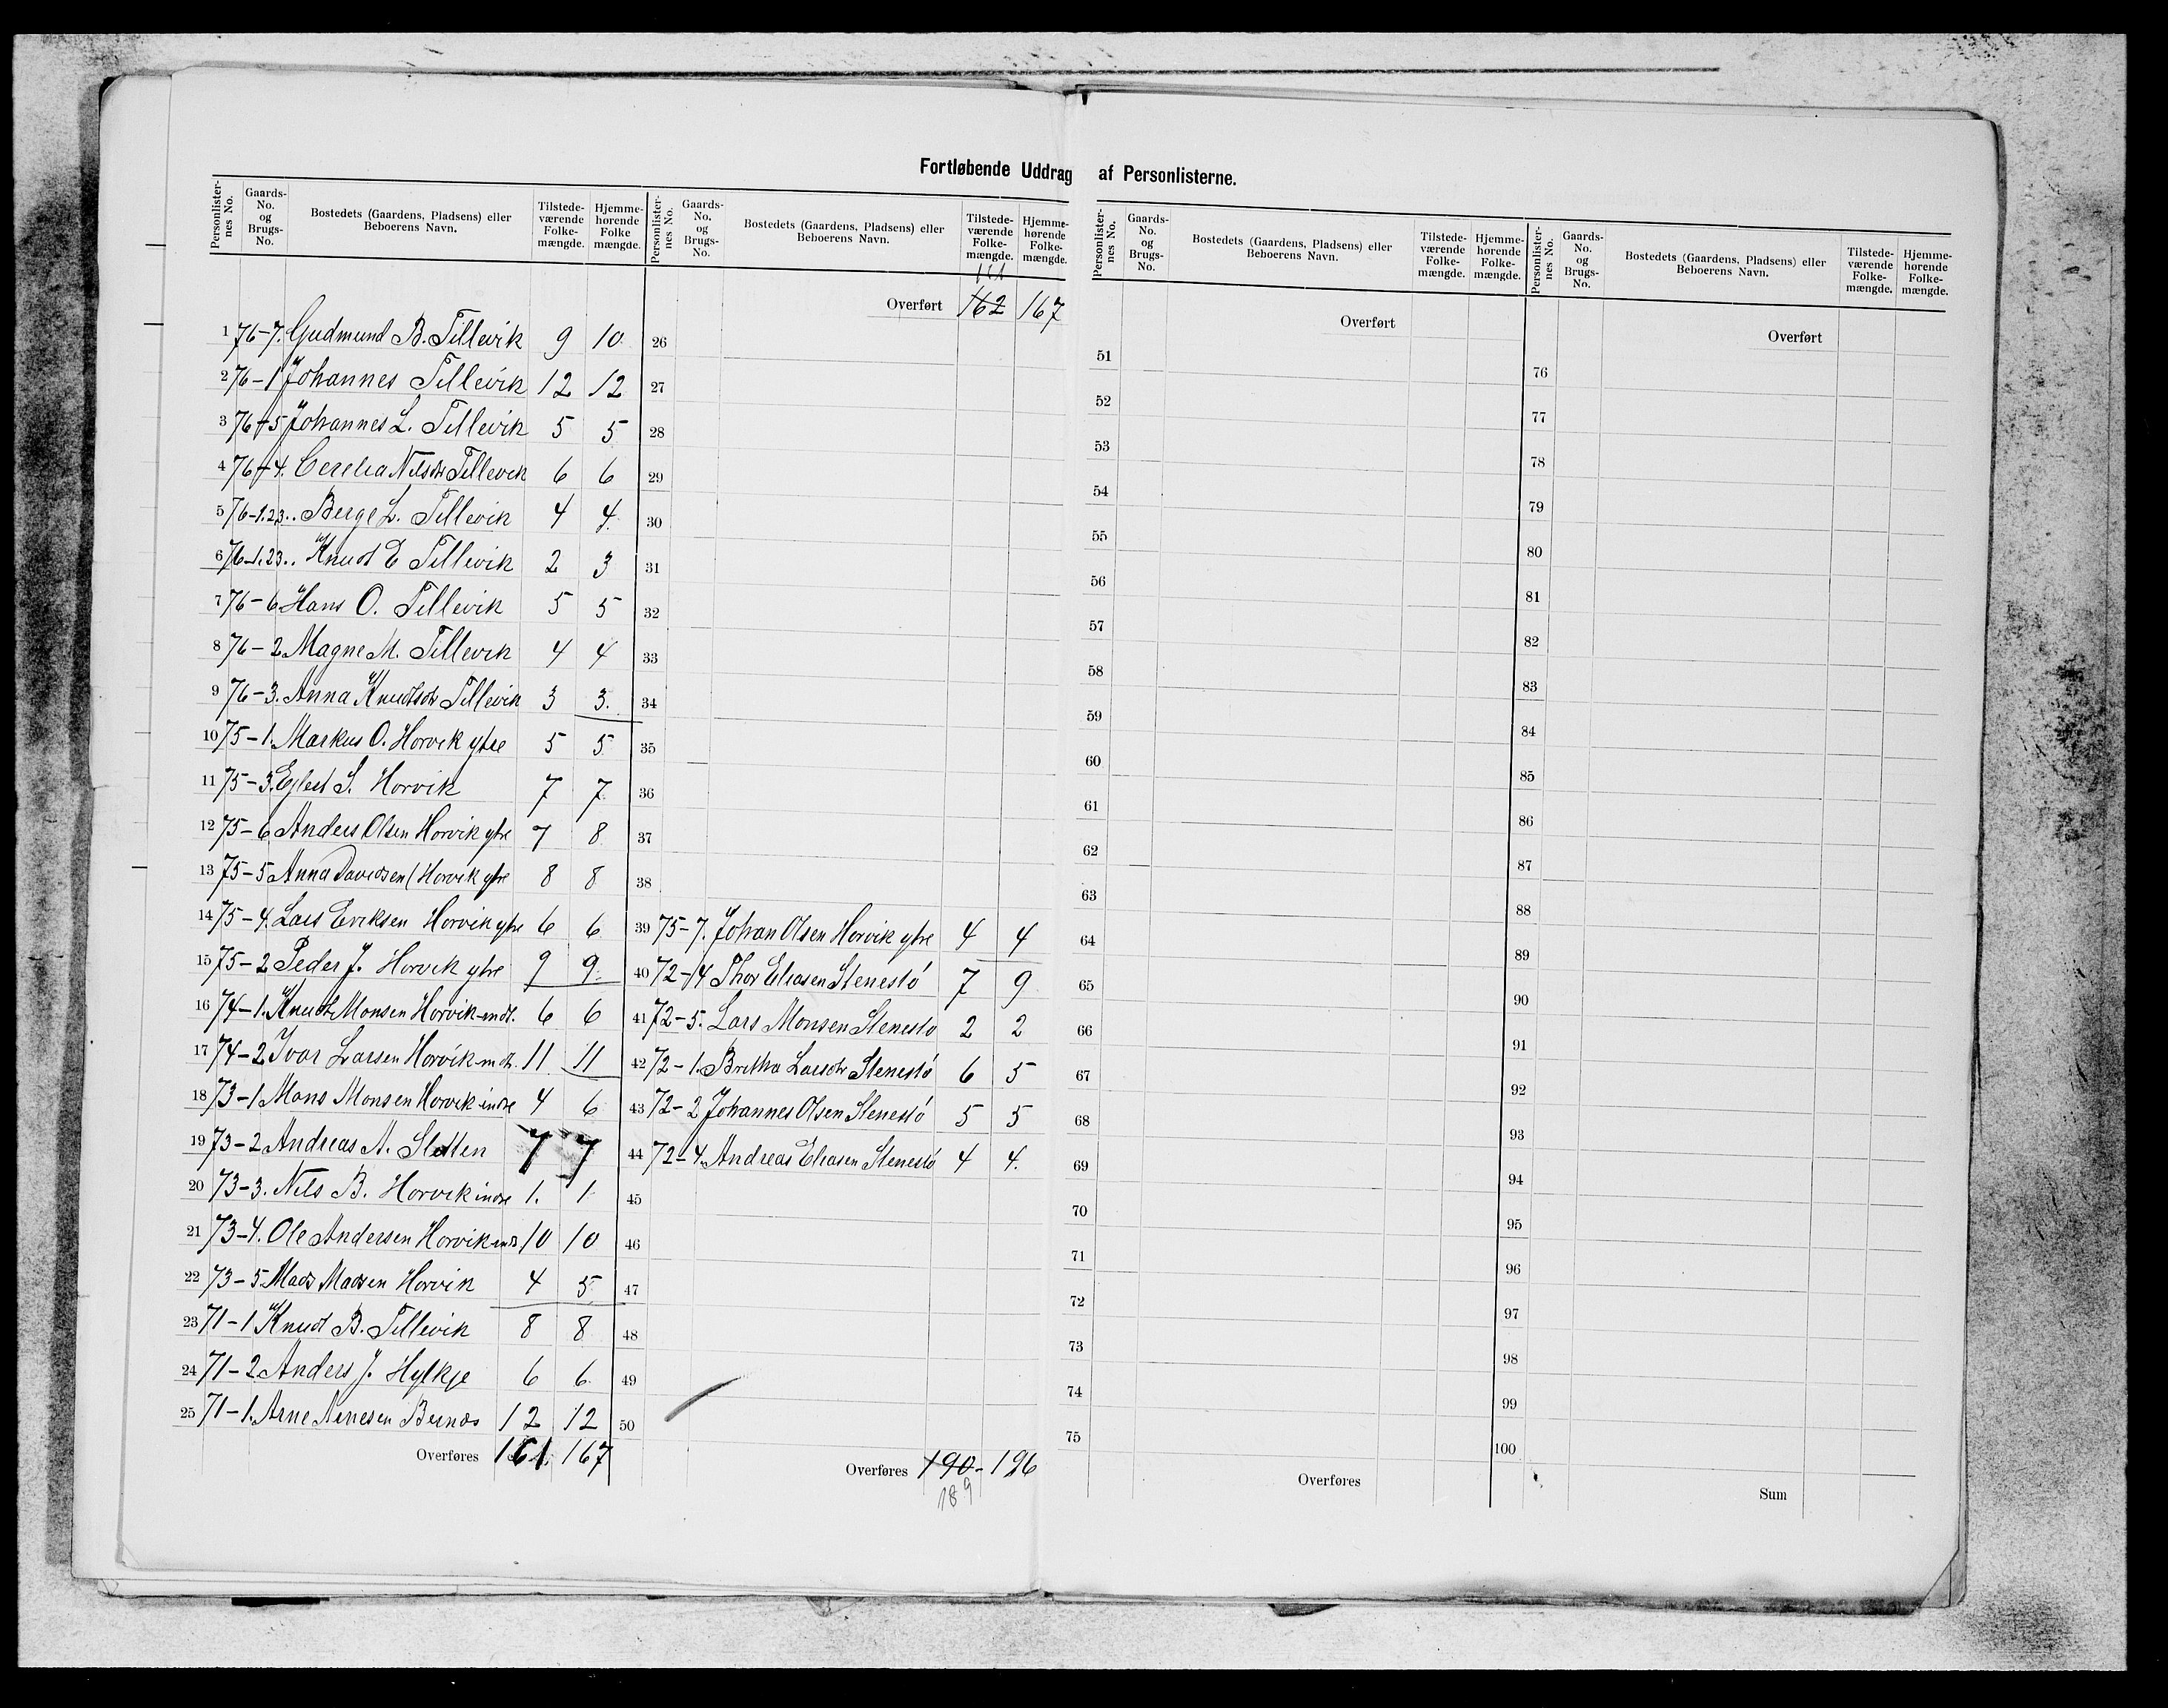 Fortløbende Uddrag af Personlisterne.
Personlister-nes No. Gaards-No. og Brugs-No. Bostedets (Gaardens, Pladsens) eller Beboerens Navn. Tilstede-værende Folke-mængde. Hjemme-hørende Folke mængde.
1 76-7. Gudmund B. Tillevik 9 10
2 76-1 Johannes Tillevik 12 12
3 76-5 Johannes L. Tillevik 5 5
4 76-4. Cecelia Nilsdtr Tillevik 6 6
5 76-1.2.3.. Berge L. Tillevik 4 4.
6 76-1.23.. Knud E Tillevik 2 3
7 76-6 Hans O. Tillevik 5 5
8 76-2 Magne M. Tillevik 4 4
9 76-3. Anna Knudtsdtr Tillevik 3 3.
10 75-1. Markus O. Horvik ytre 5 5
11 75-3. S. Horvik 7 7.
12 75-6 Anders Olsen Horvik ytre 7 8
13 75-5 Anna Davidsen (Horvik ytre 8 8
14 75-4. Lars Eriksen Horvik ytre 6 6
15 75-2 Peder J. Horvik ytre 9 9.
16 74-1. Knud Monsen Horvik 6 6
17 74-2 Ivar Larsen Horvik 11. 11
18 73-1 Mons Monsen Horvik indre 4 6
19 73-2 Andreas A. Sletten 7 7
20 73-3. Nils B. Horvik indre 1. 1
21 73-4. Ole Andersen Horvik 10 10
22 73-5. Mads Madsen Horvik 4 5
23 71-1 Knud B. Tillevik 8 8
24 71-2. Anders J. Hylkje 6 6
25 71-1. Arne 12 12
Overføres 161. 167
Personlister-nes No. Gaards-No. og Brugs-No. Bostedets (Gaardens, Pladsens) eller Beboerens Navn. Tilstede-værende Folke-mængde. Hjemme-hørende Folke-mængde.
161
Overført 162 167
26
27
28
29
30
31
32
33
34
35
36
37
38
39 75-7. Johan Olsen Horvik ytre 4 4
40 72-4 Thor Eliasen Stenestø 7 9
41 72-5. Lars Monsen Stenestø 2 2
42 72-1. Britha Larsdtr Stenestø 6 5
43 72-2 Johannes Olsen Stenestø 5 5
44 72-4. Andreas Eliasen Stenestø 4 4.
45
46
47
48
49
50
Overføres 190 - 196
189
Personlister-nes No. Gaards-No. og Brugs-No. Bostedets (Gaardens, Pladsens) eller Beboerens Navn. Tilstede-værende Folke-mængde. Hjemme-hørende Folke-mængde.
Overført
51
52
53
54
55
56
57
58
59
60
61
62
63
64
65
66
67
68
69
70
71
72
73
74
75
Overføres
Personlister-nes No. Gaards-No. og Brugs-No. Bostedets (Gaardens, Pladsens) eller Beboerens Navn. Tilstede-værende Folke-mængde. Hjemme-hørende Folke-mængde.
Overført
76
77
78
79
80
81
82
83
84
85
86
87
88
89
90
91
92
93
94
95
96
97
98
99
100
Sum